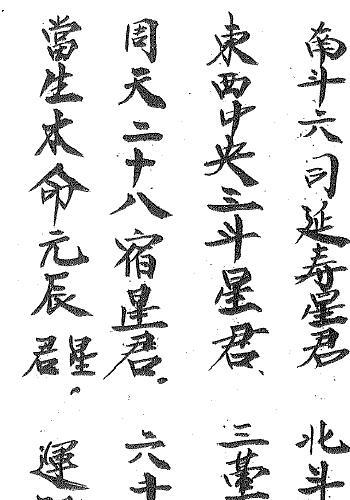 南斗六司延寿星君 北斗
東西中央三斗星君 三臺
周天二十八宿星君 六十
當生本命元辰星君 運